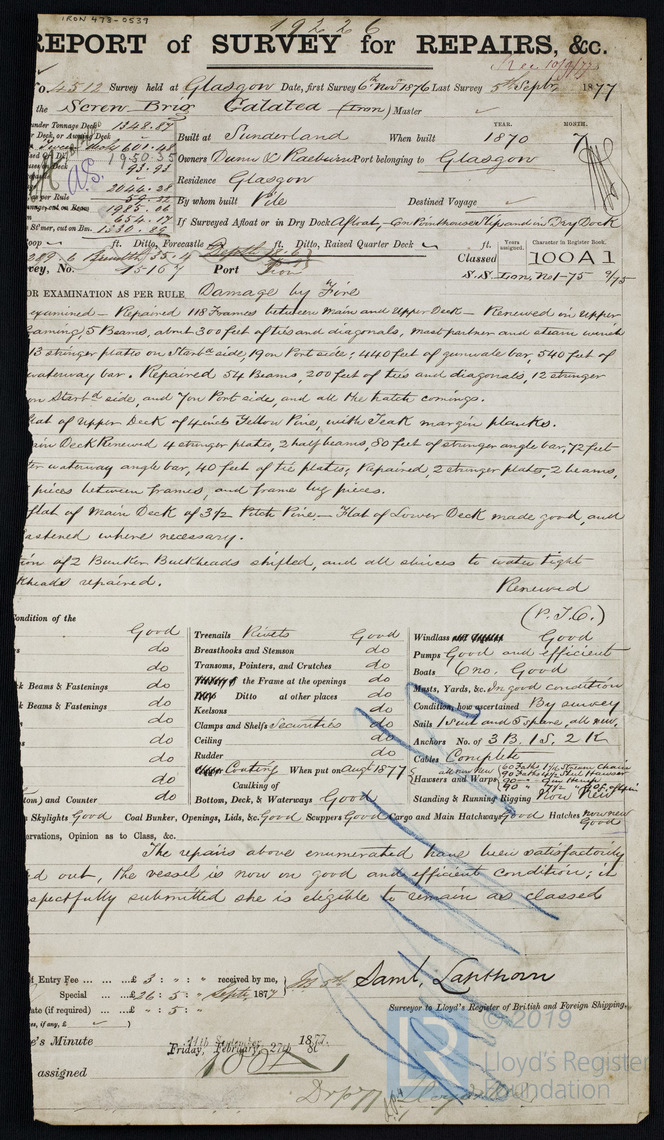 IRON 478-0539
19226
REPORT of SURVEY for REPAIRS, &c.
Rec 10/9/77
No. 4512 Survey held at Glasgow Date, first Survey 6th Novr 1876 Last Survey 5th Septr 1877
the Screw Brig Galatea (Iron) Master
under Tonnage Deck 1348.87
r Deck, or Awning Deck
601.48
1950.35
93.93
2046.28
as per Rule 59.22
1985.06
654.17
1330.89
Built at Sunderland When built YEAR. 1870 MONTH. 7
Owners Dunn & Raeburn Port belonging to Glasgow
Residence Glasgow
By whom built Pile Destined Voyage
If Surveyed Afloat or in Dry Dock Afloat, on Pointhouse Slip and in Dry Dock
Poop ft. Ditto, Forecastle ft. Ditto, Raised Quarter Deck ft.
Years assigned. Character in Register Book.
289.6 Breadth 35.4 Depth
Classed 100A1
vey, No. 15167 Port
S.S. Lon, No1-75 9/75
OR EXAMINATION AS PER RULE Damage by Fire
examined — Repaired 118 Frames between Main and Upper Deck — Renewed on Upper
eaming, 5 Beams, about 300 feet of ties and diagonals, mast partner and steam winch
13 stringer plates on Starbd side, 19 on Port side; 440 feet of gunwale bar, 540 feet of
waterway bar. Repaired 54 Beams, 200 feet of ties and diagonals, 12 stringer
on Starbd side, and 7 on Port side, and all the hatch comings.
lat of Upper Deck of 4 inch Yellow Pine, with Teak margin planks.
ain Deck Renewed 4 stringer plates, 2 half beams, 80 feet of stringer angle bar, 72 feet
ter waterway angle bar, 40 feet of tie plates, Repaired, 2 stringer plates, 2 beams,
pieces between frames, and frame lug pieces.
flat of Main Deck of 3 1/2 Pitch Pine — Flat of Lower Deck made good, and
fastened where necessary.
ion of 2 Bunker Bulkheads shifted, and all sluices to water tight
kheads repaired. Renewed
(P.T.O.)
ondition of the
Good
do
do
k Beams & Fastenings do
k Beams & Fastenings do
do
do
do
ton) and Counter do
Treenails Rivets Good
Breasthooks and Stemson do
Transoms, Pointers, and Crutches do
the Frame at the openings do
Ditto at other places do
Keelsons do
Clamps and Shelfs Securities do
Ceiling do
Rudder do
Coating When put on Augt 1877
Caulking of
Bottom, Deck, & Waterways Good
Windlass Good
Pumps Good and efficient
Boats Good
Masts, Yards, &c. In good condition
Condition, how ascertained By survey
Sails 1 Suit and 5 spare all new.
Anchors No. of 3 B. 1 S. 2 K
Cables Complete
Hawsers and Warps all now New
Standing & Running Rigging Now New
Skylights Good Coal Bunker, Openings, Lids, &c. Good Scuppers Good Cargo and Main Hatchways Good Hatches now new Good
ervations, Opinion as to Class, &c.
The repairs above enumerated have been satisfactorily
d out, the vessel is now in good and efficient condition; it
spectfully submitted she is eligible to remain as classed
Entry Fee ... ... ... £ 3 : " : " received by me,
Special ... ... £ 26 : 5 : " Septr 1877
ate (if required) ... £ " : 5 : "
es, if any, £
Saml. Lapthorn
Surveyor to Lloyd's Register of British and Foreign Shipping.
e's Minute 11th September 1877.
Friday, February 27th 80
assigned 100A1
LR
© 2019
Lloyd's Register
Foundation